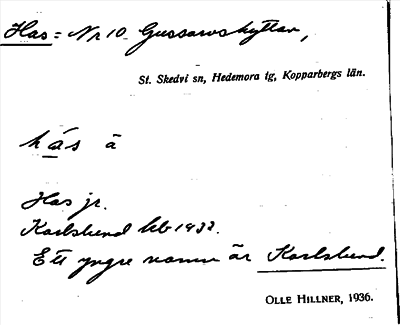 Has = Nr 10 Gussarvshyttan,
St. Skedvi sn, Hedemora tg, Kopparbergs län.
hás ä
Has jr.
Karlslund kb 1932.
Ett yngre namn är Karlslund.
OLLE HILLNER, 1936.